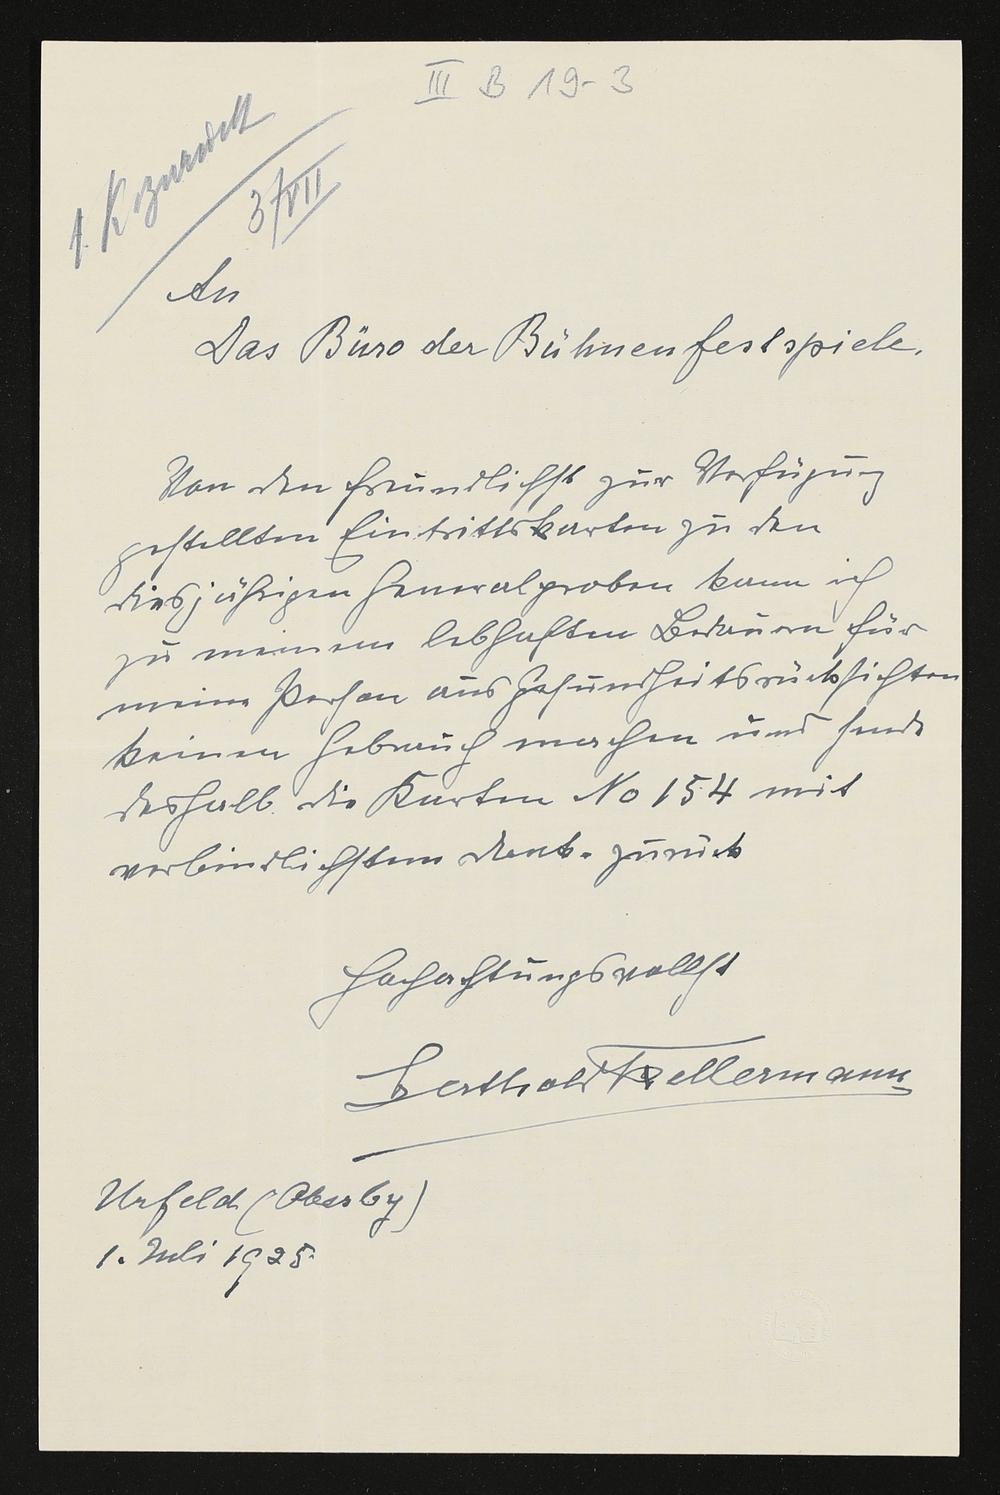 III B 19-3
3/VII
An
Das Büro der Bühnenfestspiele.
Von den freundlichst zur Verfügung
gestellten Eintrittskarten zu den
diesjährigen Generalproben kann ich
zu meinem lebhaften Bedauern für
meine Person aus Gesundheitsrücksichten
keinen Gebrauch machen und sende
deshalb die Karten No 154 mit
verbindlichstem Dank. zurück
Hochachtungsvollst
Berthold Kellermann
Urfeld (Oberby)
1. Juli 1925.